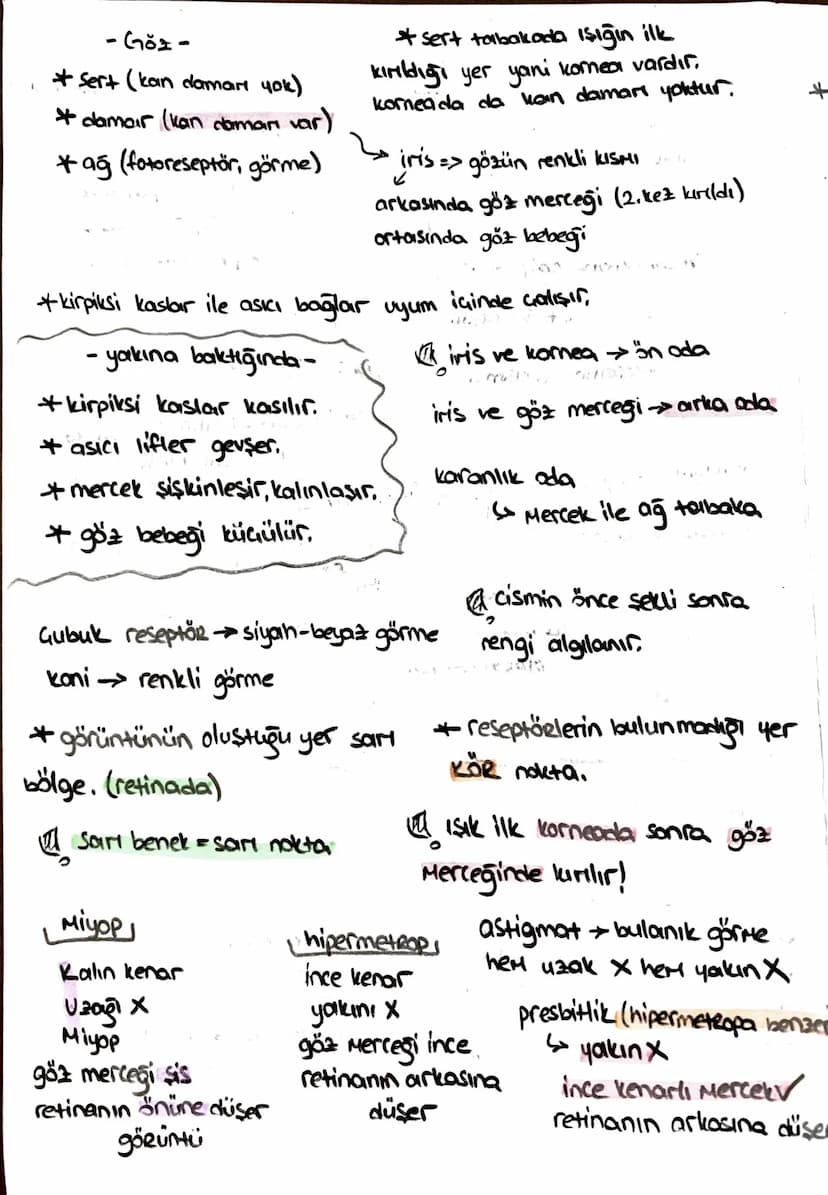 - Göz -
* sert (kan damarı yok)
* damar (kan damarı var)
* ağ (fotoreseptör, görme)
* sert tabakada ışığın ilk
kırıldığı yer yani kornea vardır.
korneada da kan damarı yoktur.
*
iris => gözün renkli kısmı
arkasında göz merceği (2. kez kırıldı)
ortasında göz bebeği
* kirpiksi kaslar ile asıcı bağlar uyum içinde çalışır.
- yakına baktığında -
* kirpiksi kaslar kasılır.
* asıcı lifler gevşer.
* mercek şişkinleşir, kalınlaşır.
* göz bebeği küçülür.
iris ve kornea → ön oda
iris ve göz merceği → arka oda
karanlık oda
↳ Mercek ile ağ tabaka
Çubuk reseptör → siyah-beyaz görme
koni → renkli görme
cismin önce şekli sonra
rengi algılanır.
* görüntünün oluştuğu yer sarı
bölge. (retinada)
sarı benek = sarı nokta
* reseptöelerin bulunmadığı yer
KÖR nokta.
Işık ilk korneada sonra göz
Merceğinde kırılır!
Miyop
Kalın kenar
Uzağı X
Miyop
göz merceği şiş
retinanın önüne düşer
görüntü
hipermetrop
ince kenar
yakını X
göz Merceği ince
retinanın arkasına
düşer
astigmat → bulanık görme
hem uzak X hem yakın X
presbitlik (hipermetropa benzer
↳ yakın X
ince kenarlı Mercek ✓
retinanın arkasına düşe